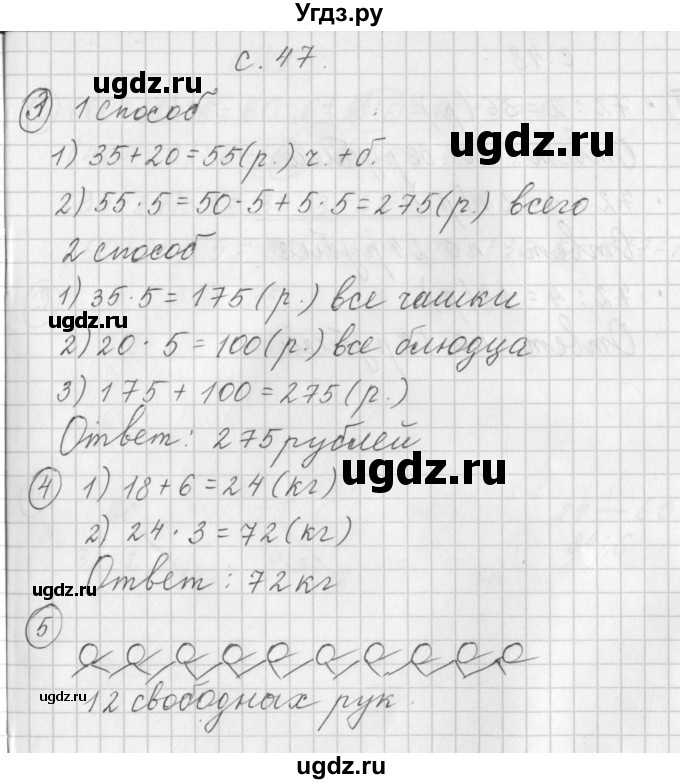 Угдз.ру
с. 47.
ugdz.ru
③ 1 способ
ugdz.ru
1) 35+20=55(р.) ч.+б.
2) 55·5=50·5+5·5=275(р.) всего
2 способ
1) 35·5=175(р.) все чашки
ugdz.ru
2) 20·5=100(р.) все блюдца
3) 175+100=275(р.)
Ответ: 275 рублей
ugdz.ru
④ 1) 18+6=24(кг)
2) 24·3=72(кг)
Ответ: 72кг
ugdz.ru
⑤
ugdz.ru
12 свободных рук
ugdz.ru
ugdz.ru